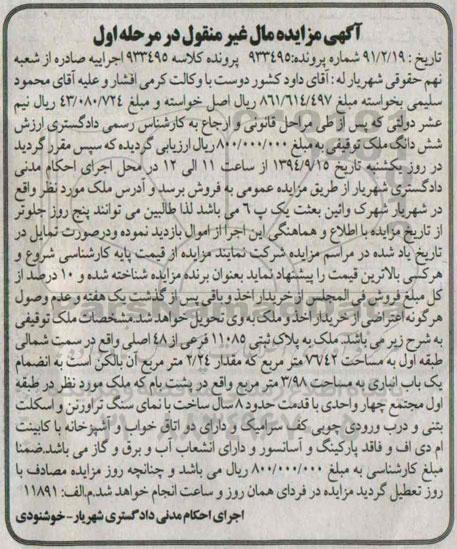 آگهی مزایده مال غیر منقول در مرحله اول
تاریخ : ۹۱/۲/۱۹ شماره پرونده: ۹۳۳۴۹۵ پرونده کلاسه ۹۳۳۴۹۵ اجراییه صادره از شعبه
نهم حقوقی شهریار له : آقای داود کشور دوست با وکالت کرمی افشار و علیه آقای محمود
سلیمی بخواسته مبلغ ۸۶۱/۶۱۴/۴۹۷ ریال اصل خواسته و مبلغ ۴۳/۰۸۰/۷۲۴ ریال نیم
عشر دولتی که پس از طی مراحل قانونی و ارجاع به کارشناس رسمی دادگستری ارزش
شش دانگ ملک توقیفی به مبلغ ۸۰۰/۰۰۰/۰۰۰ ریال ارزیابی گردیده که سپس مقرر گردید
در روز یکشنبه تاریخ ۱۳۹۴/۹/۱۵ از ساعت ۱۱ الی ۱۲ در محل اجرای احکام مدنی
دادگستری شهریار از طریق مزایده عمومی به فروش برسد و آدرس ملک مورد نظر واقع
در شهریار شهرک وائین بعثت یک پ ۶ می باشد لذا طالبین می توانند پنج روز جلوتر
از تاریخ مزایده با اطلاع و هماهنگی این اجرا از اموال بازدید نموده ودرصورت تمایل در
تاریخ یاد شده در مراسم مزایده شرکت نمایند مزایده از قیمت پایه کارشناسی شروع و
هرکسی بالاترین قیمت را پیشنهاد نماید بعنوان برنده مزایده شناخته شده و ۱۰ درصد از
کل مبلغ فروش فی المجلس از خریدار اخذ و باقی پس از گذشت یک هفته و عدم وصول
هرگونه اعتراضی از خریدار اخذ و ملک به وی تحویل خواهد شد. مشخصات ملک توقیفی
به شرح زیر می باشد. ملک به پلاک ثبتی ۱۱۰۸۵ فرعی از ۴۸ اصلی واقع در سمت شمالی
طبقه اول به مساحت ۷۶/۴۲ متر مربع که مقدار ۲/۲۴ متر مربع آن بالکن است به انضمام
یک باب انباری به مساحت ۳/۹۸ متر مربع واقع در پشت بام که ملک مورد نظر در طبقه
اول مجتمع چهار واحدی با قدمت حدود ۸ سال ساخت با نمای سنگ تراورتن و اسکلت
بتنی و درب ورودی چوبی کف سرامیک و دارای دو اتاق خواب و آشپزخانه با کابینت
ام دی اف و فاقد پارکینگ و آسانسور و دارای انشعاب آب و برق و گاز می باشد.ضمنا
مبلغ کارشناسی به مبلغ ۸۰۰/۰۰۰/۰۰۰ ریال می باشد و چنانچه روز مزایده مصادف با
روز تعطیل گردید مزایده در فردای همان روز و ساعت انجام خواهد شد.م.الف: ۱۱۸۹۱
اجرای احکام مدنی دادگستری شهریار - خوشنودی